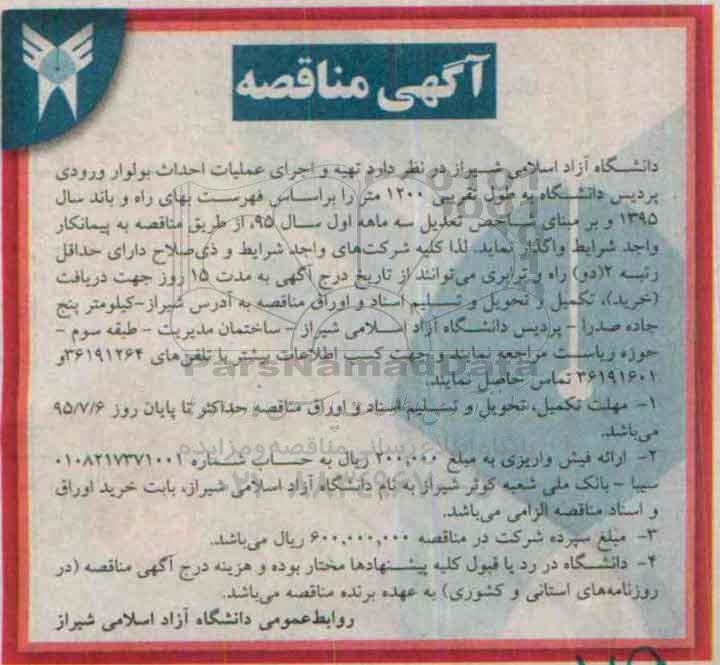 آگهی مناقصه
دانشگاه آزاد اسلامی شیراز در نظر دارد تهیه و اجرای عملیات احداث بولوار ورودی
پردیس دانشگاه به طول تقریبی ۱۲۰۰ متر را براساس فهرست بهای راه و باند سال
۱۳۹۵ و بر مبنای شاخص تعدیل سه ماهه اول سال ۹۵، از طریق مناقصه به پیمانکار
واجد شرایط واگذار نماید. لذا کلیه شرکت‌های واجد شرایط و ذی‌صلاح دارای حداقل
رتبه ۲(دو) راه و ترابری می‌توانند از تاریخ درج آگهی به مدت ۱۵ روز جهت دریافت
(خرید)، تکمیل و تحویل و تسلیم اسناد و اوراق مناقصه به آدرس شیراز-کیلومتر پنج
جاده صدرا - پردیس دانشگاه آزاد اسلامی شیراز - ساختمان مدیریت - طبقه سوم -
حوزه ریاست مراجعه نمایند و جهت کسب اطلاعات بیشتر با تلفن‌های ۳۶۱۹۱۲۶۴و
۳۶۱۹۱۶۰۱ تماس حاصل نمایند.
۱- مهلت تکمیل، تحویل و تسلیم اسناد و اوراق مناقصه حداکثر تا پایان روز ۹۵/۷/۶
می‌باشد.
۲- ارائه فیش واریزی به مبلغ ۲۰۰,۰۰۰ ریال به حساب شماره ۰۱۰۸۲۱۷۳۷۱۰۰۱
سیبا - بانک ملی شعبه کوثر شیراز به نام دانشگاه آزاد اسلامی شیراز، بابت خرید اوراق
و اسناد مناقصه الزامی می‌باشد.
۳- مبلغ سپرده شرکت در مناقصه ۶۰۰,۰۰۰,۰۰۰ ریال می‌باشد.
۴- دانشگاه در رد یا قبول کلیه پیشنهادها مختار بوده و هزینه درج آگهی مناقصه (در
روزنامه‌های استانی و کشوری) به عهده برنده مناقصه می‌باشد.
روابط‌عمومی دانشگاه آزاد اسلامی شیراز
ParsNamadData
پایگاه اطلاع رسانی مناقصه و مزایده